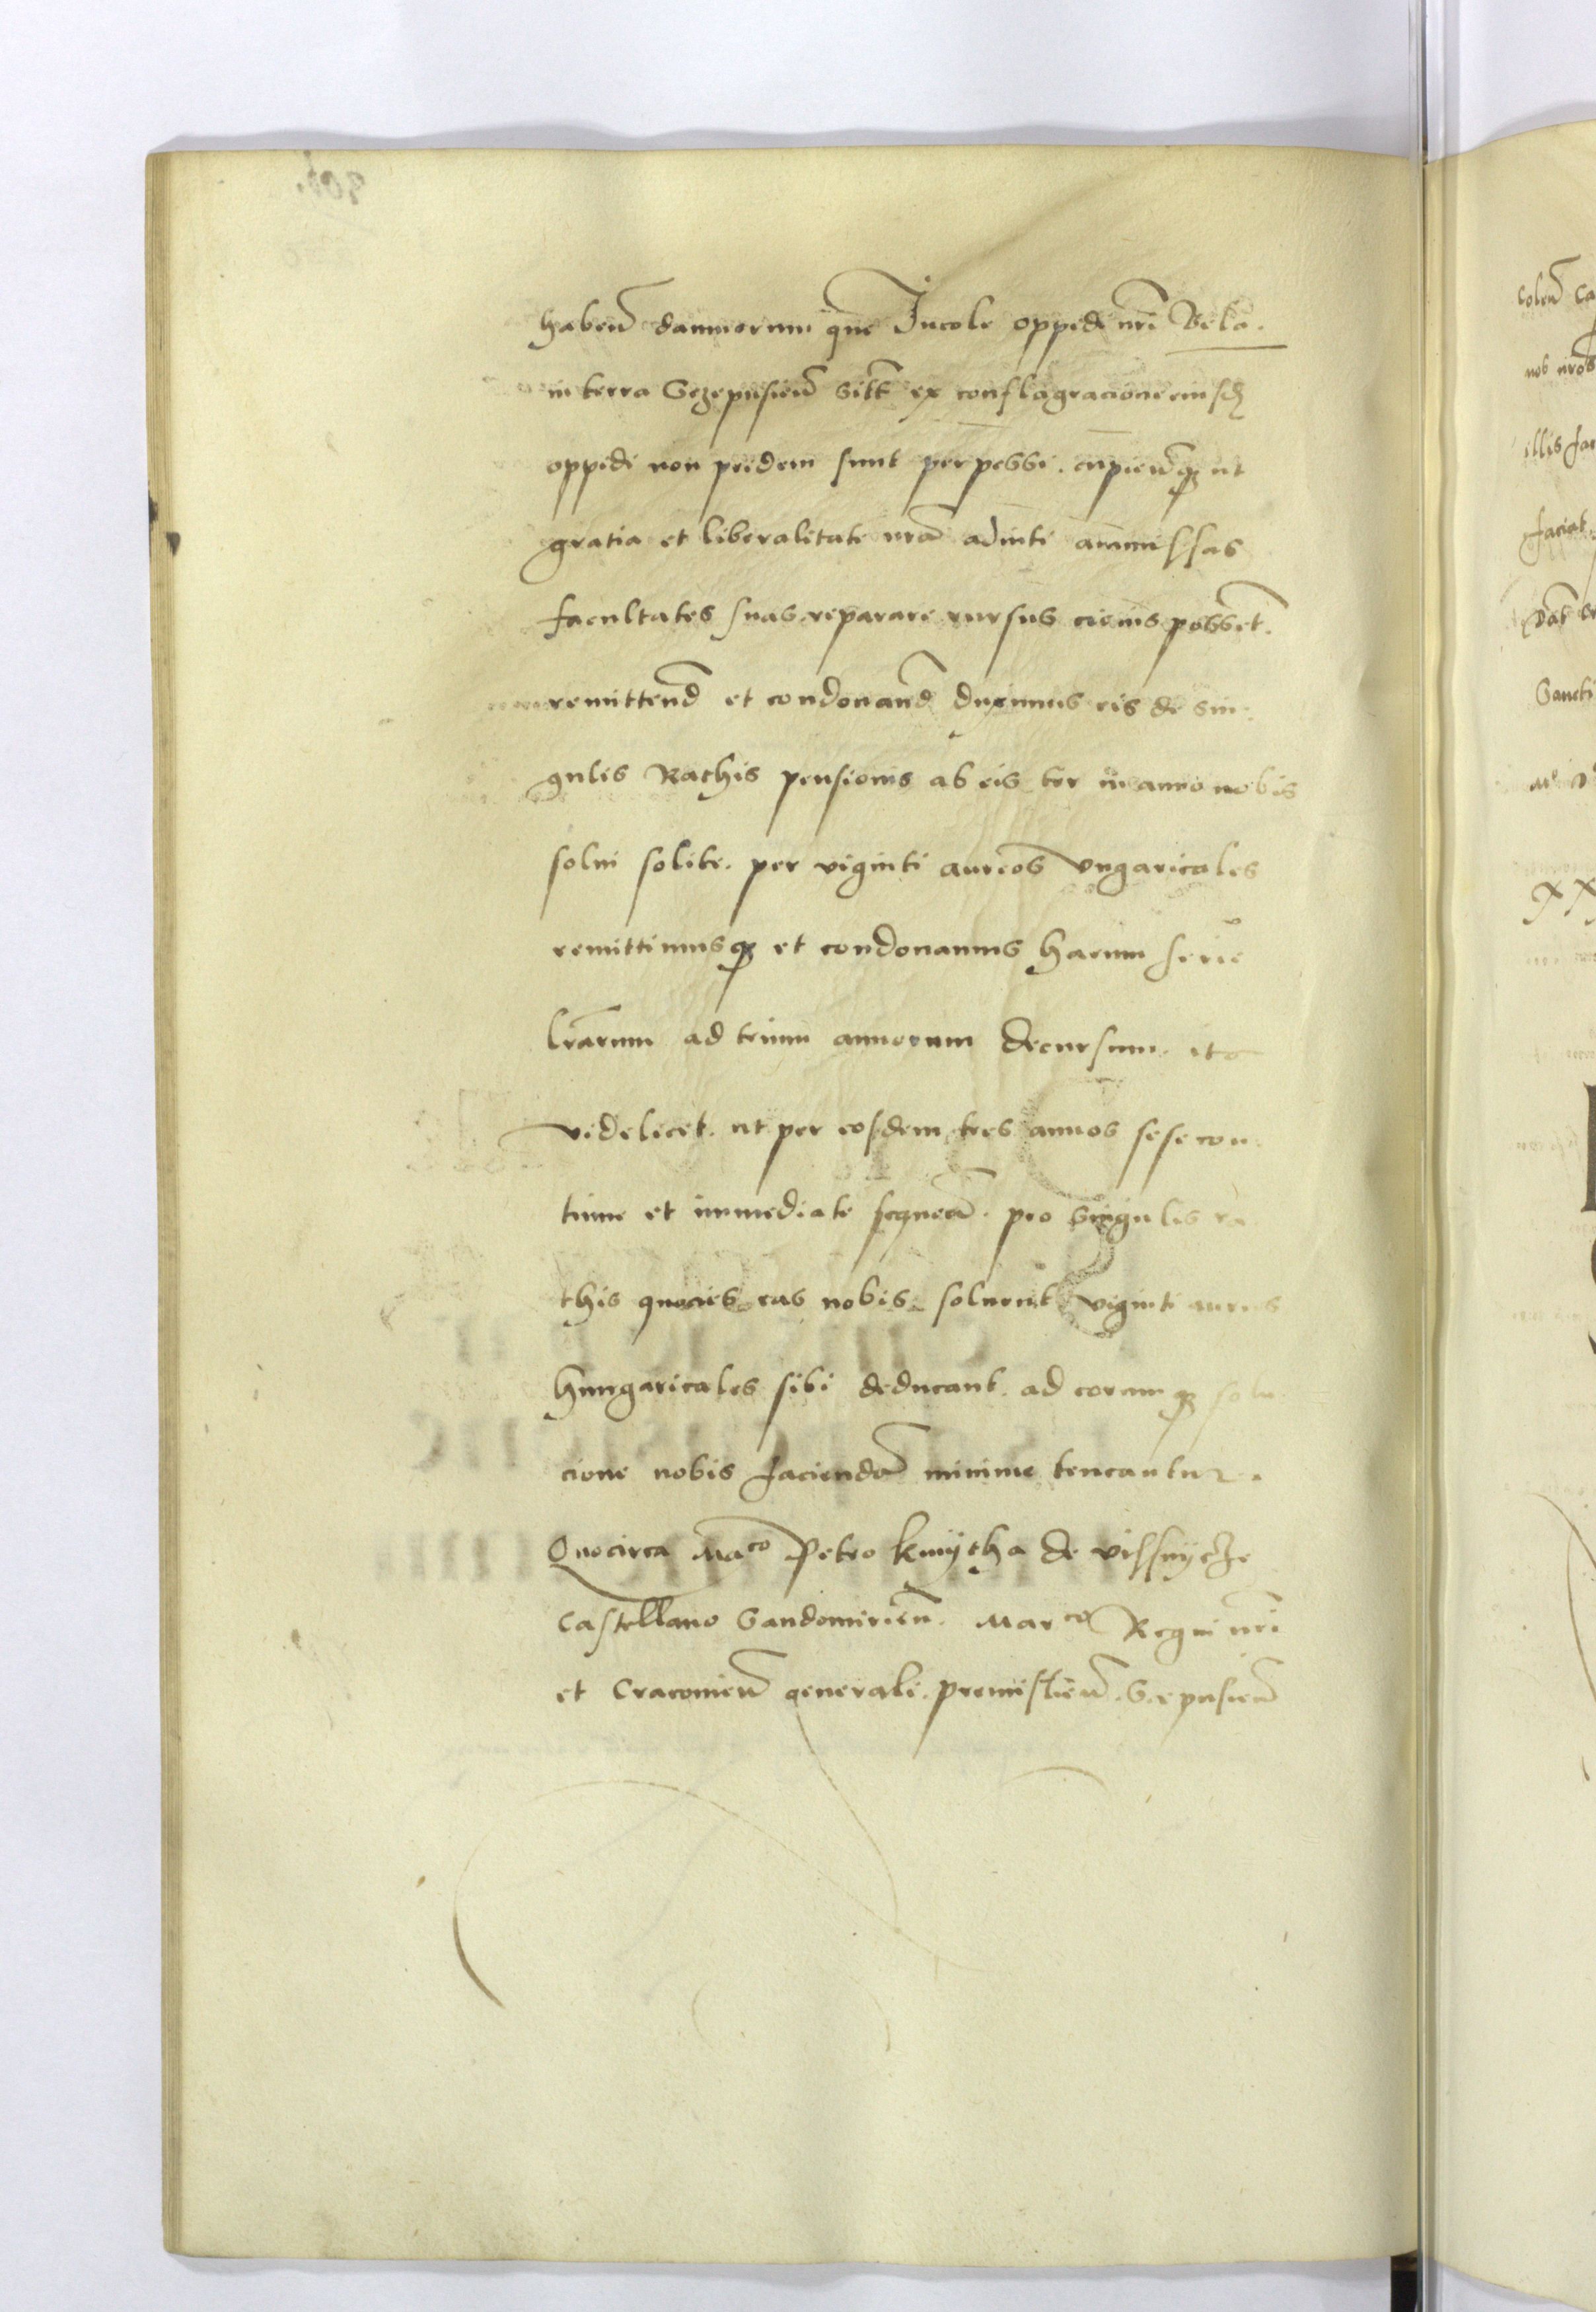 habeñ damnorum que Incole oppidi nrĩ Bela.
in terra Sczepusieñ sitĩ ex conflagracione eiusdẽ
oppidi non pridem sunt perpessi. cupieñq₃ ut
gratia et liberalitate nrã adiuti ammissas
facultates suas reparare rursus cicius possẽt.
remittend̃ et condonand̃ duximus eis de sin-
gulis Rathis pensionis ab eis ter in anno nobis
solui solite. per viginti aureos Vngaricales
remittimusq₃ et condonamus harum serie
lrãrum ad trium annorum decursum. ita
videlicet. ut per eosdem tres annos sese con-
tinue et immediate sequeñ. pro singulis ra
this quocies eas nobis soluent viginti aureos
hungaricales sibi deducant. ad eorumq₃ solu
cione nobis faciendã minime teneantur.
Quocirca Maco Petro kmÿtha de visſnÿcze
Castellano Sandomirieñ. Marco Regni nrĩ
et Cracouieñ generali. premislieñ. Scepusieñ